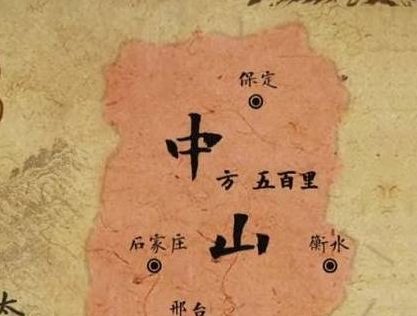 保定
中
方 五百里
山
石家庄
衡水
邢台